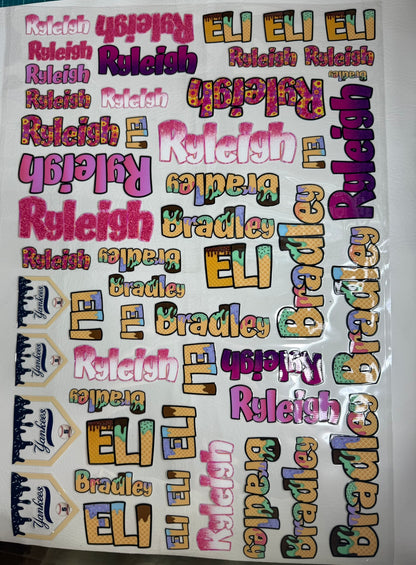 Ryleigh
Ryleigh
ELI
ELI
ELI
Ryleigh
Ryleigh
Ryleigh
Ryleigh
Ryleigh
Bradley
Ryleigh
Ryleigh
Ryleigh
Ryleigh
Ryleigh
ELI
Ryleigh
ELI
Ryleigh
Bradley
Ryleigh
Bradley
Bradley
Ryleigh
Bradley
ELI
Bradley
Bradley
Yankees
ELI
ELI
Bradley
Yankees
Ryleigh
ELI
Ryleigh
Bradley
Ryleigh
Yankees
ELI
ELI
Bradley
Ryleigh
Bradley
Bradley
Bradley
Yankees
ELI
ELI
ELI